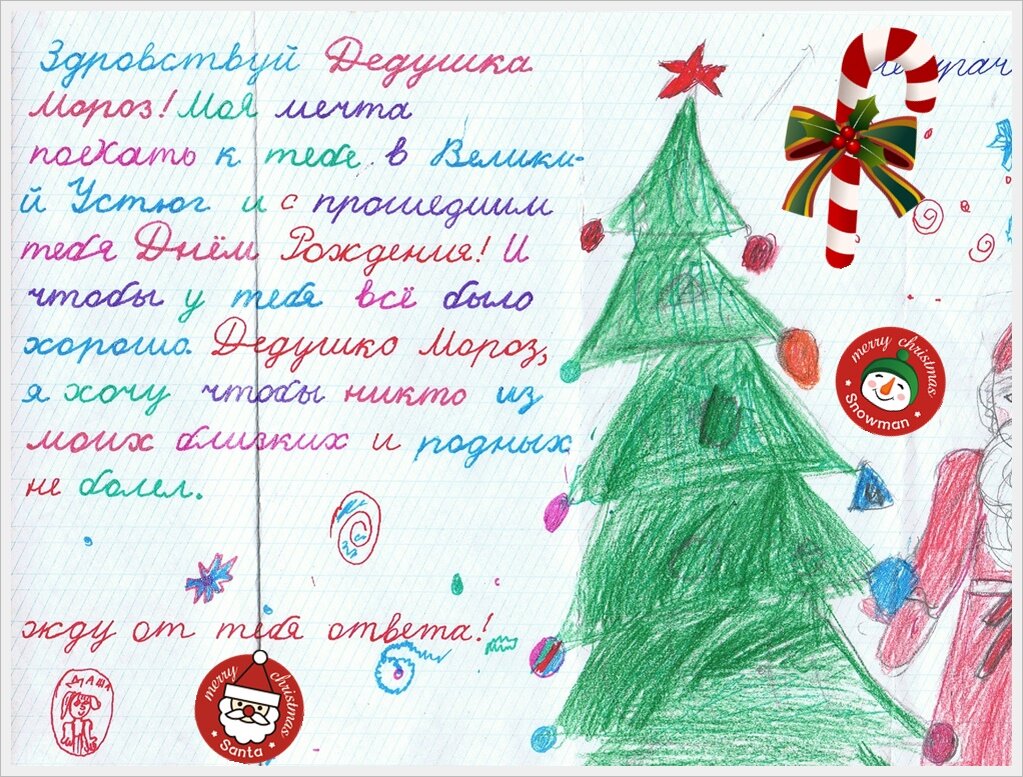 Здравствуй Дедушка
Мороз! Моя мечта
поехать к тебе в Велики-
й Устюг и с прошедшим
тебя Днём Рождения! И
чтобы у тебя всё было
хорошо. Дедушко Мороз,
я хочу чтобы никто из
моих близких и родных
не болел.
жду от тебя ответа!
ДАША
merry christmas
Santa
merry christmas
Snowman